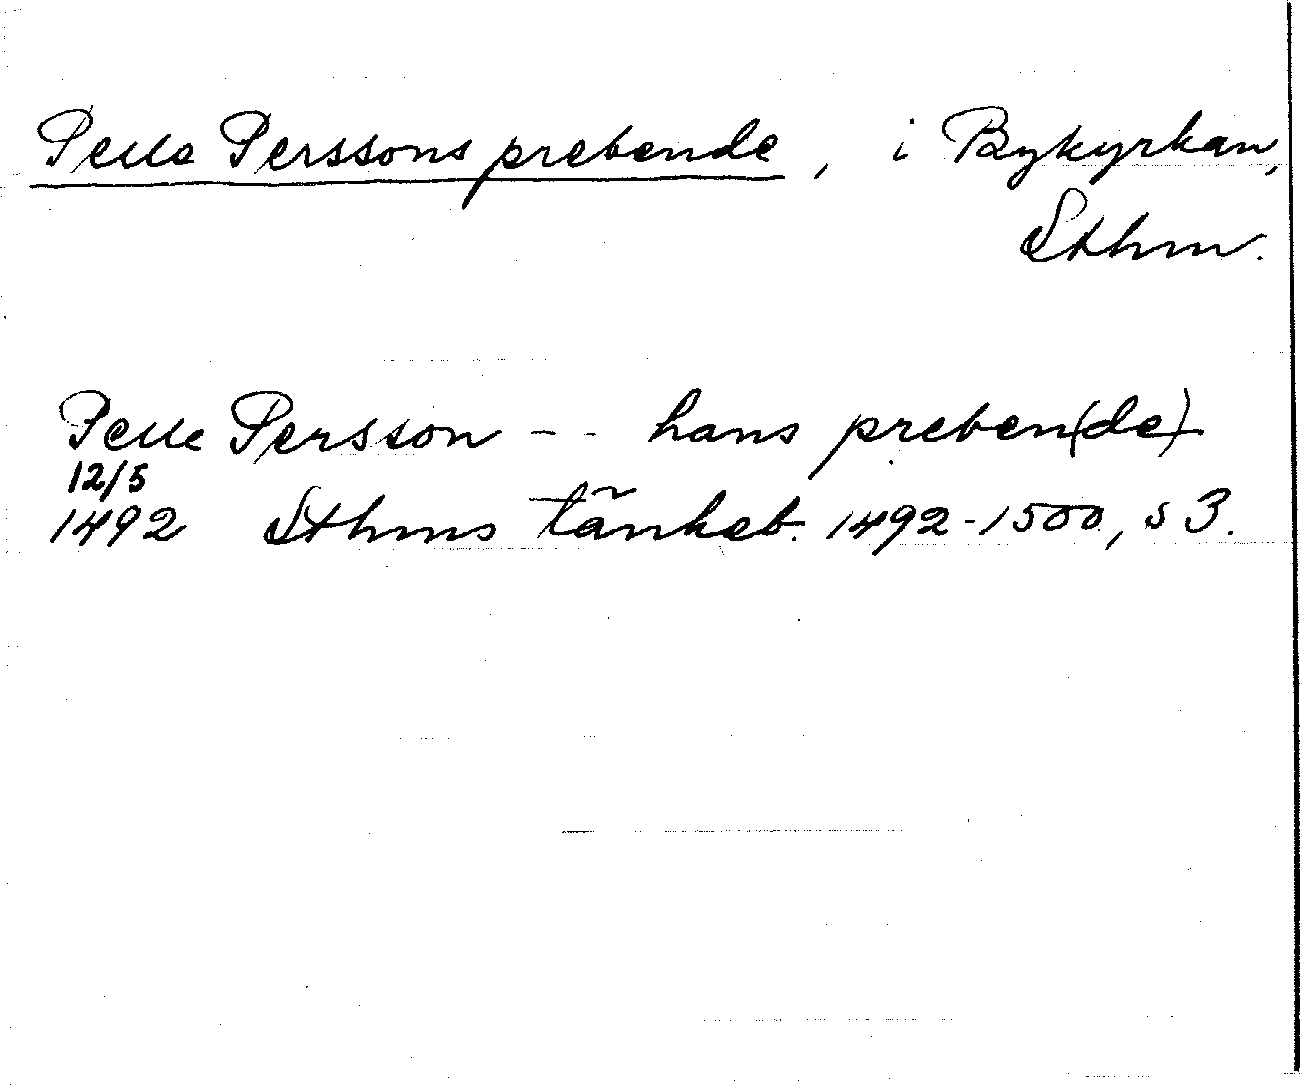 Pelle Perssons prebende, i Bykyrkan,
Sthm.
Pelle Persson - - hans preben(de)
12/5
1492 Sthms tänkeb. 1492-1500, s 3.